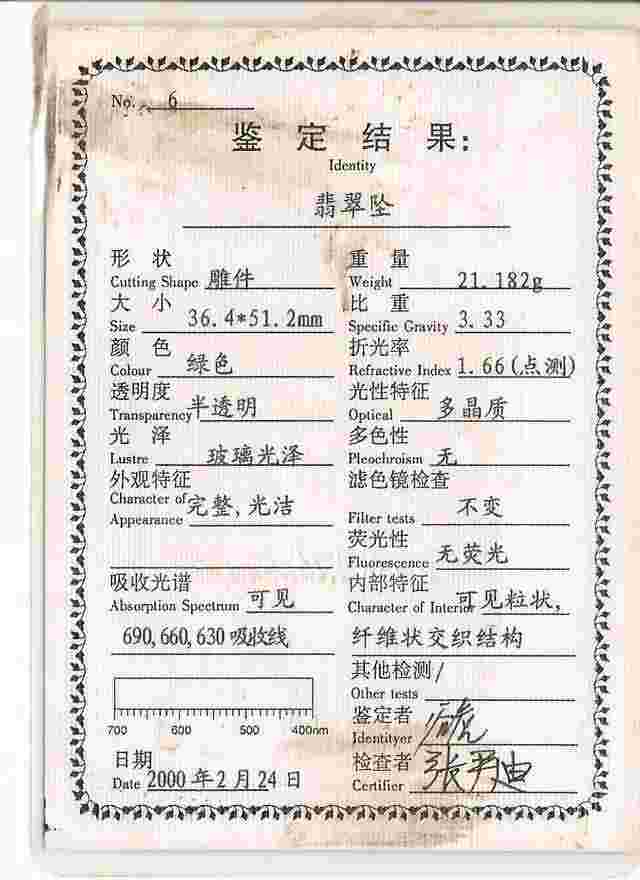 No. 6
鉴 定 结 果:
Identity
翡翠坠
形 状
Cutting Shape 雕件
重 量
Weight 21.182g
大 小
Size 36.4*51.2mm
比 重
Specific Gravity 3.33
颜 色
Colour 绿色
折光率
Refractive Index 1.66(点测)
透明度
Transparency 半透明
光性特征
Optical 多晶质
光 泽
Lustre 玻璃光泽
多色性
Pleochroism 无
外观特征
Character of
Appearance 完整,光洁
滤色镜检查
Filter tests 不变
荧光性
Fluorescence 无荧光
吸收光谱
Absorption Spectrum 可见
690,660,630吸收线
内部特征
Character of Interior 可见粒状,
纤维状交织结构
其他检测/
Other tests
700 600 500 400nm
鉴定者
Identityer
日期
Date 2000年2月24日
检查者
Certifier